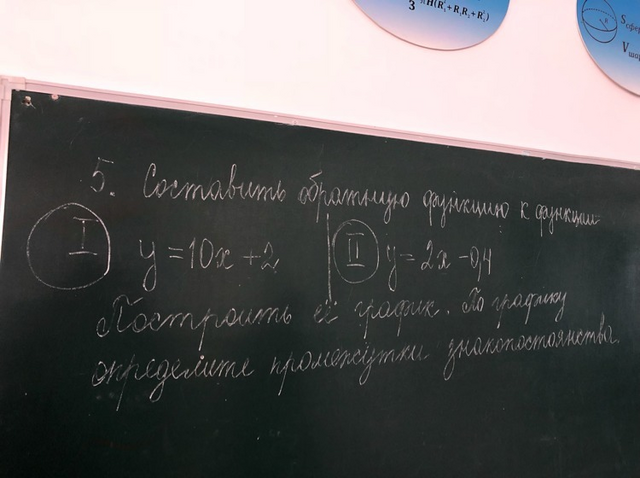 3 πH(R₁²+R₁R₂+R₂²)
Sсфер
Vшар
5. Составить обратную функцию к функции
I y=10x+2 II y=2x-0,4
Построить её график. По графику
определите промежутки знакопостоянства.